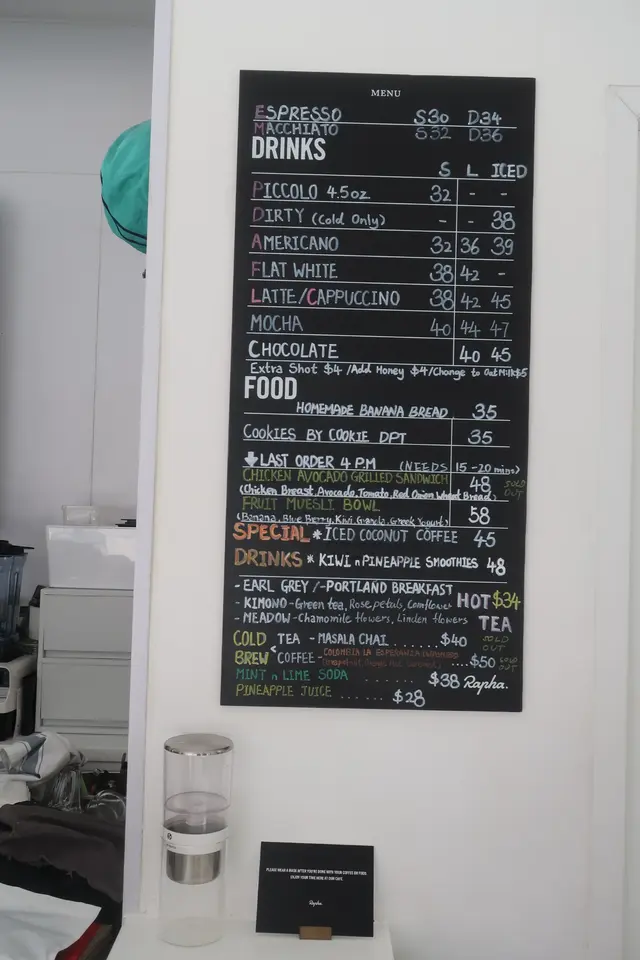 MENU
ESPRESSO S30 D34
MACCHIATO S32 D36
DRINKS
S L ICED
PICCOLO 4.5oz 32 - -
DIRTY (Cold Only) - - 38
AMERICANO 32 36 39
FLAT WHITE 38 42 -
LATTE/CAPPUCCINO 38 42 45
MOCHA 40 44 47
CHOCOLATE 40 45
Extra Shot $4 /Add Honey $4/Change to Oat Milk $5
FOOD
HOMEMADE BANANA BREAD 35
COOKIES BY COOKIE DPT 35
LAST ORDER 4 P.M (NEEDS 15-20 mins)
CHICKEN AVOCADO GRILLED SANDWICH 48 SOLD OUT
(Chicken Breast, Avocado, Tomato, Red Onion Wheat Bread)
FRUIT MUESLI BOWL 58
(Banana, Blue Berry, Kiwi, Granola, Greek Yogurt)
SPECIAL * ICED COCONUT COFFEE 45
DRINKS * KIWI n PINEAPPLE SMOOTHIES 48
- EARL GREY /-PORTLAND BREAKFAST
- KIMONO - Green tea, Rose petals, Cornflower HOT $34
- MEADOW - Chamomile flowers, Linden flowers TEA
COLD TEA - MASALA CHAI ........ $40 SOLD OUT
BREW < COFFEE - COLOMBIA LA ESPERANZA .... $50 SOLD OUT
MINT n LIME SODA ...... $38 Rapha.
PINEAPPLE JUICE ...... $28
PLEASE WEAR A MASK AFTER YOU'RE DONE WITH YOUR COFFEE OR FOOD.
ENJOY YOUR TIME HERE AT OUR CAFE.
Rapha